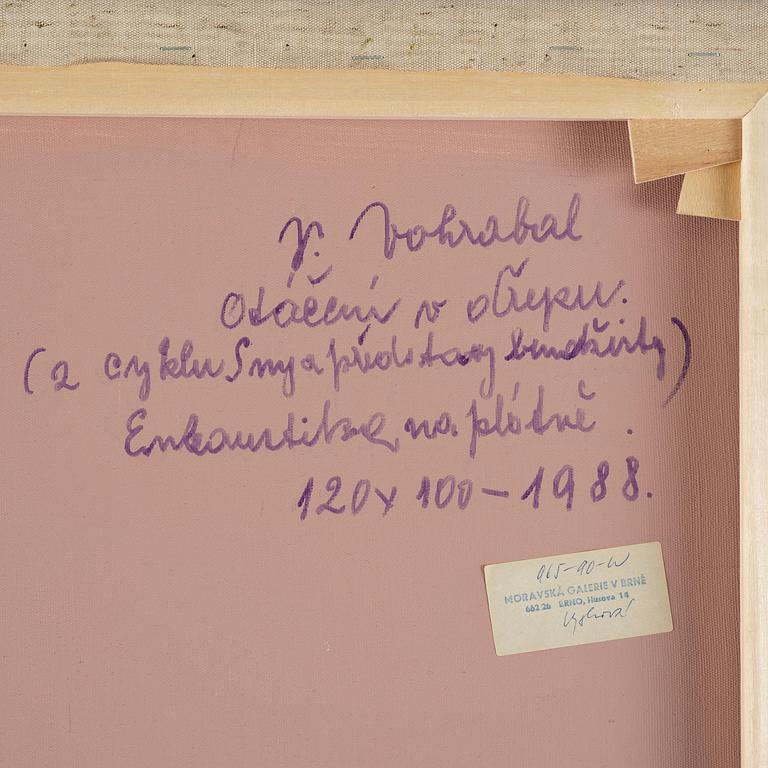 V. Vohrabal
Otáčení v obřeku.
(z cyklu Sny a představy bendžisty)
Enkaustika na plótně.
120x 100 - 1988.
965-90-W
MORAVSKÁ GALERIE V BRNĚ
662 26 BRNO, Husova 14